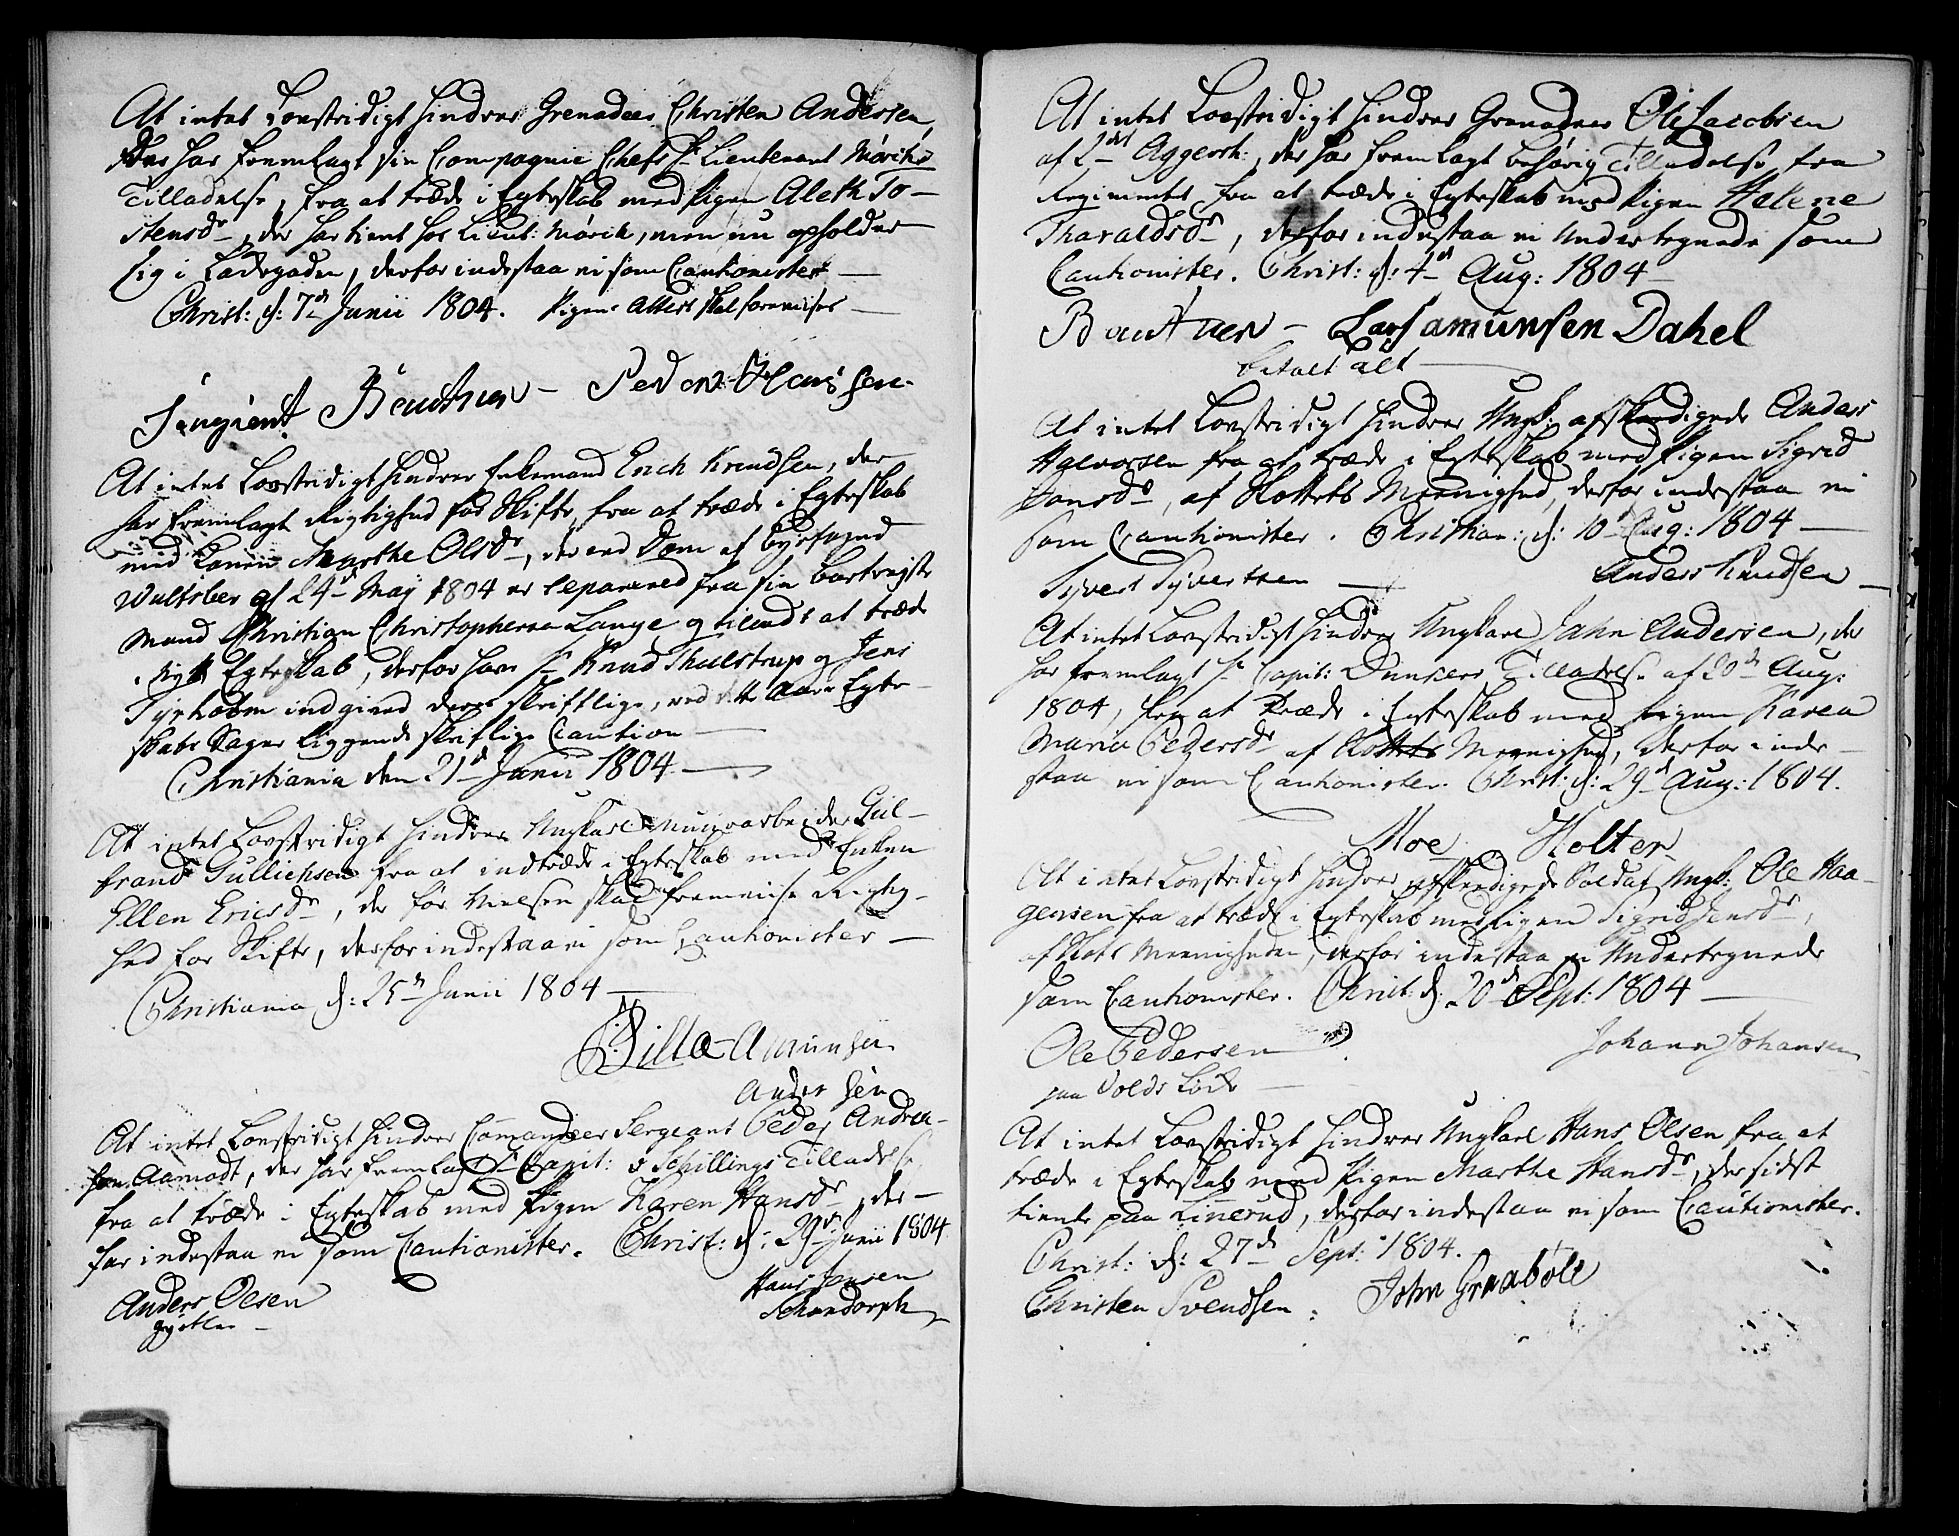 At intet Lovstridigt hindrer Grenadeer Christen Andersen,
der har fremlagt sin Compagnie Chefs Hr Lieutenant Mørichs
Tilladelse, fra at træde i Egteskab med Pigen Aleth To-
stensdr, der har tient hos Lieut: Mørich, men nu opholder
sig i Ladegaden, derfor indestaa vi som Cautionister
Christ: d: 7de Junii 1804. Pigens Attest skal forevises
Sergient Beuthner Peder Hansen
At intet Lovstridigt hindrer Enkemand Erich Knudsen, der
har fremlagt Rigtighed for Skifte, fra at træde i Egteskab
med Konen Marthe Olsdr, der ved Dom af Byefogd
Wultsberg af 24de May 1804 er separered fra sin bortrejste
Mand Christian Christophersen Lange og tilladt at træde
i Nyt Egteskab, derfor har Hr Knud Thulstrup og Jens
Tyrholm indgived deres skriftlige, ved dette Aars Egte-
skabs Sager liggende skriftlige Caution
Christiania den 21de Junii 1804.
At intet Lovstridigt hindrer Ungkarl Muurarbeider Gul-
brand Gullichsen fra at indtræde i Egteskab med Enken
Ellen Ericsdr, der før Vielsen skal fremvise Rigtig-
hed for Skifte, derfor indestaa vi som Cautionister
Christiania d: 25de Junii 1804
Amunsen
Andersen
At intet Lovstridigt hindrer Comandeer Sergeant Peder Andrea-
sen Aamodt, der har fremlagt Hr Capit: v Schillings Tilladelse
fra at træde i Egteskab med Pigen Karen Hansdr, der-
for indestaa vi som Cautionister. Christ: d: 29de Junii 1804
Anders Olsen Hans Jensen
Schandorph
At intet Lovstridigt hindrer Grenadeer Ole Jacobsen
af 2det Aggersh:, der har fremlagt behørig Tilladelse fra
Regimentet fra at træde i Egteskab med Pigen Helene
Tharaldsdr, derfor indestaa vi Undertegnede som
Cautionister. Christ: d: 4de Aug: 1804
Beuthner Lars amunsen Dahel
betalt alt
At intet Lovstridigt hindrer Ungk: afskedigede Anders
Halvorsen fra at træde i Egteskab med Pigen Sigrid
Jonsdr, af Slottets Meenighed, derfor indestaa vi
som Cautionister. Christian: d: 10de Aug: 1804
Syvert Syvertsen Anders Knudsen
At intet Lovstridigt hindrer Ungkarl Jahn Andersen, der
har fremlagt Hr Capit: Dunkers Tilladelse af 20de Aug:
1804, fra at træde i Egteskab med Pigen Karen
Maria Pedersdr af Slottets Meenighed, derfor inde-
staa vi som Cautionister. Christ: d: 29de Aug: 1804.
Moe Holter
At intet Lovstridigt hindrer afskedigede Soldat Ungk: Ole Haa-
gensen fra at træde i Egteskab med Pigen Sigrid Jensdr,
af Slots Meenigheden, derfor indestaa vi Undertegnede
som Cautionister. Christ: d: 20de Sept: 1804
Ole Pedersen Johann Johansen
paa Volds Løkke
At intet Lovstridigt hindrer Ungkarl Hans Olsen fra at
træde i Egteskab med Pigen Marthe Hansdr, der sidst
tiente paa Linerud, derfor indestaa vi som Cautionister.
Christ: d: 27de Sept: 1804.
Christen Svendsen. John Graabøle